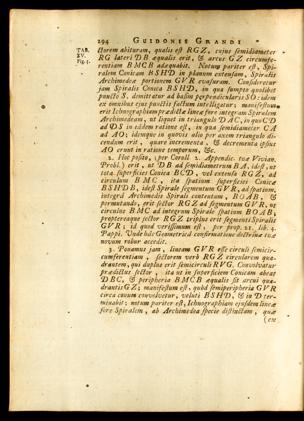 294 GUIDONIS GRANDI
TAB. XV. Fig. 5.
ctorem abituram, qualis est RGZ, cujus semidiameter
RG lateri DB æqualis erit, & arcus GZ circumfe-
rentiam BMCB adæquabit. Notum pariter est, Spi-
ralem Conicam BSHD in planum extensam, Spiralis
Archimedeæ portionem GVR evasuram. Consideretur
jam Spiralis Conica BSHD, in qua sumpto quolibet
puncto S, dimittatur ad basim perpendicularis SO; idem
ex omnibus ejus punctis factum intelligatur; manifestum
erit Ichnographiam prædictæ lineæ fore integram Spiralem
Archimedeam, ut liquet in triangulo DAC, in quo CD
ad DS in eadem ratione est, in qua semidiameter CA
ad AO; idemque in quovis alio per axem triangulo di-
cendum erit, quare incrementa, & decrementa ipsius
AO erunt in ratione temporum, &c.
2. Hoc posito, (per Coroll 2. Appendic. tuæ Vivian.
Probl.) erit, ut DB ad semidiametrum BA, idest, ut
tota superficies Conica BCD, vel extensa RGZ, ad
circulum BMC, ita spatium superficiei Conicæ
BSHDB, idest Spirale segmentum GVR, ad spatium,
integrâ Archimedis Spirali contentum, BOAB, &
permutando, erit sector RGZ ad segmentum GVR, ut
circulus BMC ad integrum Spirale spatium BOAB,
propterea sector RGZ triplus erit segmenti Spiralis
GVR; id quod verissimum est, per prop. 21. lib. 4.
Pappi. Unde hâc Geometricâ confirmatione doctrinæ tuæ
novum robur accedit.
3. Ponamus jam, lineam GVR esse circuli semicir-
cumferentiam, sectorem verò RGZ circularem qua-
drantem, qui duplus erit semicirculi RVG. Convolvatur
prædictus sector, ita ut in superficiem Conicam abeat
DBC, & peripheria BMCB æqualis sit arcui qua-
drantis GZ; manifestum est, quòd semiperipheria GVR
circa conum convolvetur, veluti BSHD, & in D ter-
minabit: notum pariter est, Ichnographiam ejusdem lineæ
fore Spiralem, ab Archimedea specie distinctam, quæ
(ex